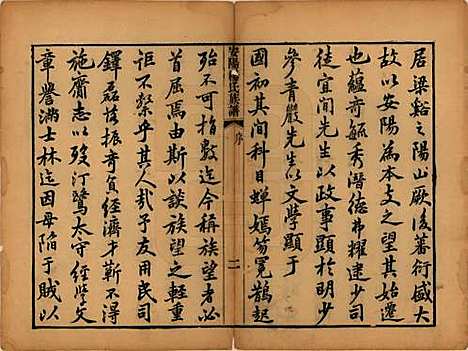 居梁谿之陽山厥後蕃衍盛大
故以安陽為本支之望其始遷
也蘊奇毓秀潛德弗耀逮少司
徒宜閒先生以政事顯於明少
參青嚴先生以文學顯于
國初其間科目蟬嫣笏冕鵲起
安陽 氏族譜 序 二
殆不可指數迄今稱族望者必
首屈焉由斯以談族望之輕重
詎不繫乎其人哉子友用民司
鐸磊落振奇負經濟才靳不得
施齎志以歿汀鷺太守經學文
章譽滿士林迄因母陷于賊以